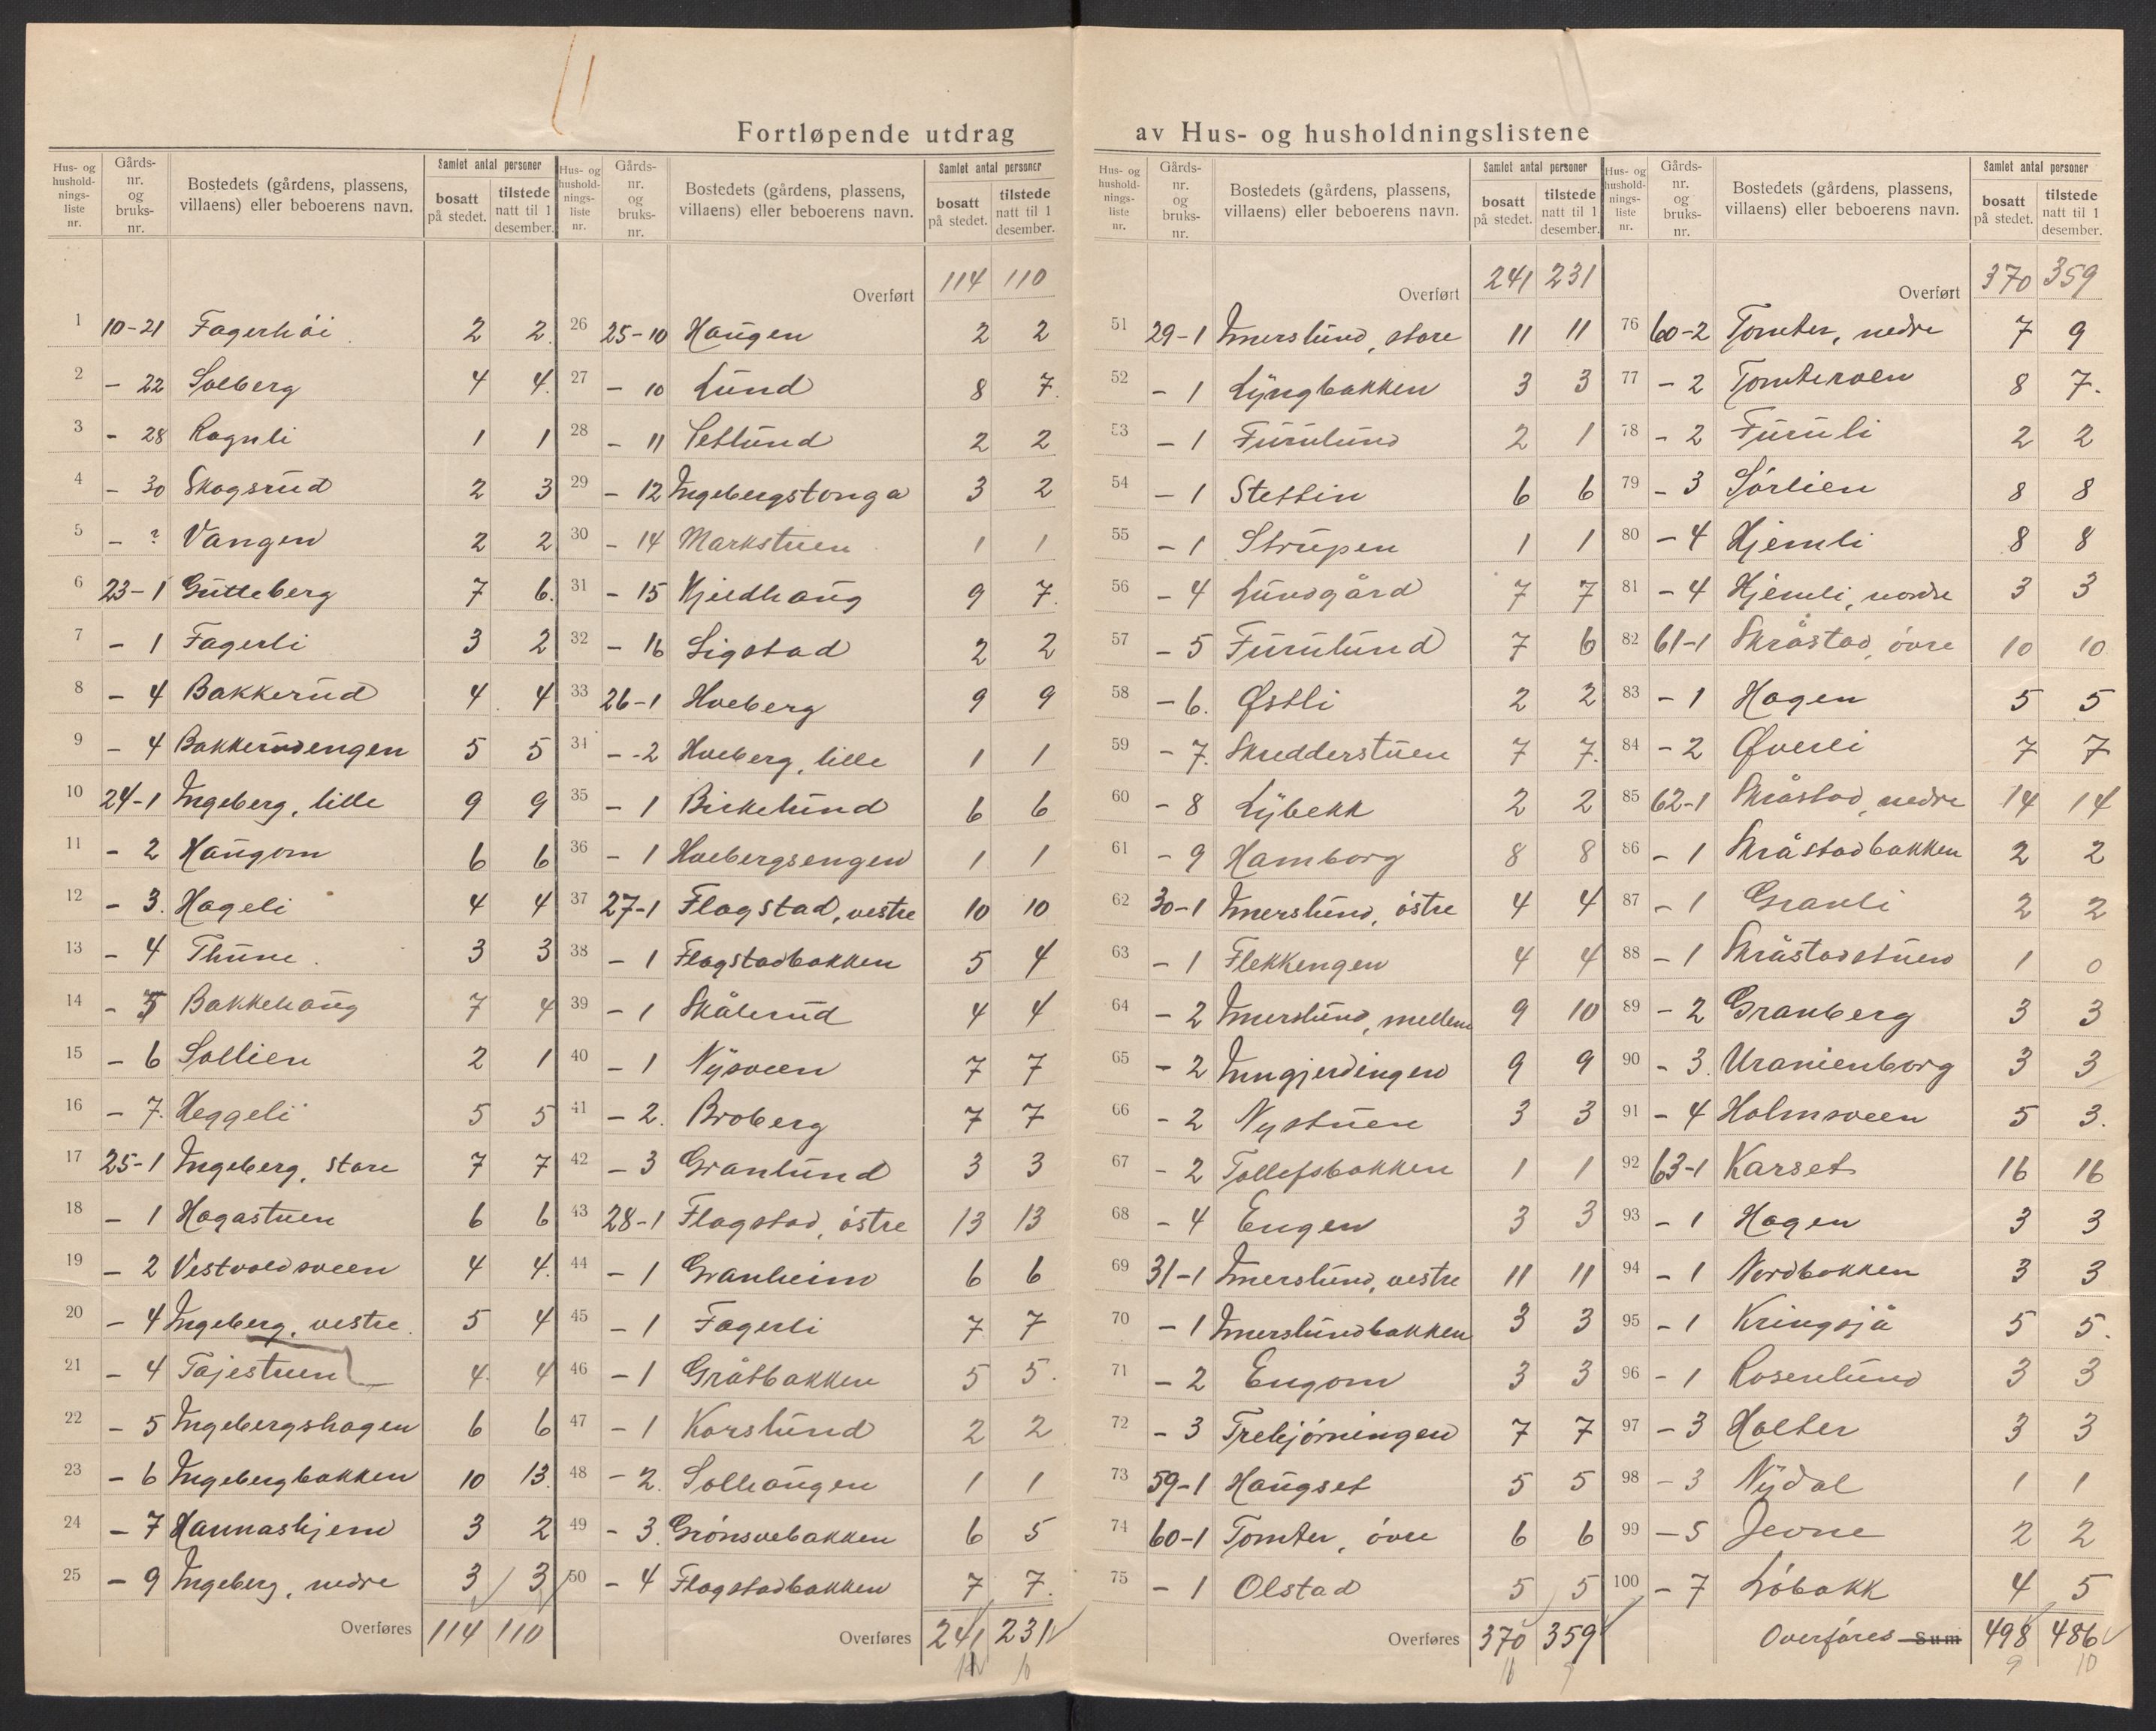 Fortløpende utdrag av Hus- og husholdningslistene
Hus- og husholdnings-liste nr. | Gårds-nr. og bruks-nr. | Bostedets (gårdens, plassens, villaens) eller beboerens navn. | Samlet antal personer | bosatt på stedet. | tilstede natt til 1 desember.
1 10-21 Fagerhöi 2 2
2 - 22 Solberg 4 4
3 - 28 Ragnli 1 1
4 - 30 Skogsrud 2 3
5 - ? Vangen 2 2
6 23-1 Gütteberg 7 6.
7 - 1 Fagerli 3 2
8 - 4 Bakkerud 4 4
9 - 4 Bakkerudengen 5 5
10 24-1 Ingeberg, lille 9 9
11 - 2 Haugom 6 6
12 - 3. Hageli 4 4
13 - 4 Thune. 3 3
14 - 5 Bakkehaug 7 4
15 - 6 Sollien 2 1
16 - 7. Heggeli 5 5
17 25-1 Ingeberg, store 7 7
18 - 1 Hagastuen 6 6
19 - 2 Vestvoldsveen 4 4.
20 - 4 Ingeberg, vestre 5 4
21 - 4 Tajestuen 4. 4
22 - 5 Ingebergshagen 6 6
23 - 6 Ingebergbakken 10 13.
24 - 7 Hannashjem 3 2
25 - 9 Ingeberg, nedre 3 3
Overføres 114 110
Hus- og husholdnings-liste nr. | Gårds-nr. og bruks-nr. | Bostedets (gårdens, plassens, villaens) eller beboerens navn. | Samlet antal personer | bosatt på stedet. | tilstede natt til 1 desember.
Overført 114 110
26 25-10 Haugen 2 2
27 - 10 Lund 8 7.
28 - 11 Setlund 2 2
29 - 12 Ingebergstonga 3 2
30 - 14 Markstuen 1 1
31 - 15 Kjeldhaug 9 7.
32 - 16 Sigstad 2 2
33 26-1 Hveberg 9 9
34 - -2 Hveberg, lille 1 1
35 - 1 Birkelund 6 6
36 - 1 Hvebergsengen 1 1
37 27-1 Flagstad, vestre 10 10
38 - 1 Flagstadbakken 5 4
39 - 1 Skålerud 4 4
40 - 1 Nysveen 7 7
41 - 2. Broberg 7 7
42 - 3 Granlund 3 3
43 28-1 Flagstad, östre 13 13
44 - 1 Granheim 6 6
45 - 1 Fagerli 7 7
46 - 1 Gråtbakken 5 5.
47 - 1 Korslund 2 2
48 - 2. Solhaugen 1 1
49 - 3. Grønsvebakken 6 5
50 - 4 Flagstadbakken 7 7.
Overføres 241 231
10
Hus- og husholdnings-liste nr. | Gårds-nr. og bruks-nr. | Bostedets (gårdens, plassens, villaens) eller beboerens navn. | Samlet antal personer | bosatt på stedet. | tilstede natt til 1 desember.
Overført 241 231
51 29-1 Imerslund, store 11 11
52 - 1 Lyngbakken 3 3
53 - 1 Furulund 2 1
54 - 1 Stettin 6 6
55 - 1 Strupen 1 1
56 - 4 Lundgård 7 7
57 - 5 Furulund 7 6
58 - 6. Østli 2 2
59 - 7. Skredderstuen 7 7.
60 - 8 Lybekk 2 2
61 - 9 Hamborg 8 8
62 30-1 Imerslund, östre 4 4
63 - 1 Flekkengen 4 4
64 - 2 Imerslund, mellem 9 10
65 - 2 Inngjerdingen 9 9
66 - 2 Nystuen 3 3
67 - 2 Tollefsbakken 1 1
68 - 4 Engen 3 3
69 31-1 Imerslund, vestre 11 11
70 - 1 Imerslundbakken 3 3
71 - 2 Engom 3 3
72 - 3 Trehjørningen 7 7
73 59-1 Haugset 5 5
74 60-1 Tomter, övre 6 6
75 - 1 Olstad 5 5
Overføres 370 359
11 9
Hus- og husholdnings-liste nr. | Gårds-nr. og bruks-nr. | Bostedets (gårdens, plassens, villaens) eller beboerens navn. | Samlet antal personer | bosatt på stedet. | tilstede natt til 1 desember.
Overført 370 359
76 60-2 Tomter, nedre 7 9
77 - 2 Tomteroen 8 7.
78 - 2 Furuli 2 2
79 - 3 Sörlien 8 8
80 - 4 Hjemli 8 8
81 - 4 Hjemli, nordre 3 3
82 61-1 Skråstad, övre 10 10
83 - 1 Hagen 5 5
84 - 2 Øverli 7 7
85 62-1 Skråstad, nedre 14 14
86 - 1 Skråstadbakken 2 2
87 - 1 Granli 2 2
88 - 1 Skråstadstuen 1 0
89 - 2 Granberg 3 3
90 - 3. Uranienborg 3 3
91 - 4 Holmsveen 5 3.
92 63-1 Karset 16 16
93 - 1 Hagen 3 3
94 - 1 Nordbakken 3 3
95 - 1 Kringsjå 5 5.
96 - 1 Rosenlund 3 3
97 - 3 Holter 3 3
98 - 3 Nydal 1 1
99 - 5 Jevne 2 2
100 - 7 Löbakk 4 5
Overføres Sum 498 486
9 10